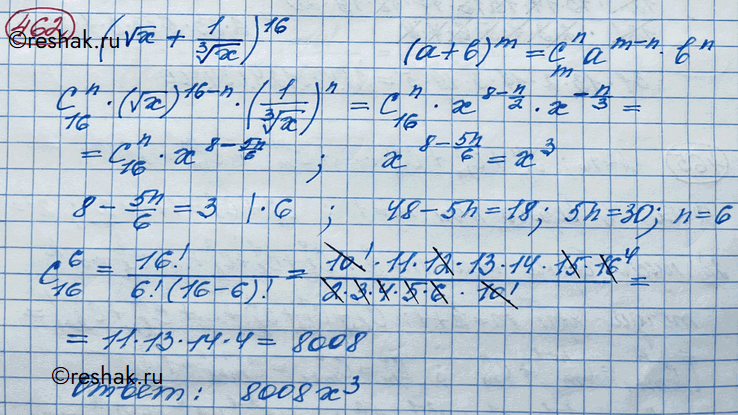 462 (√x + 1/∛x)^16   (a+b)^m = C_m^n a^(m-n) · b^n
©reshak.ru
C_16^n · (√x)^(16-n) · (1/∛x)^n = C_16^n · x^(8-n/2) · x^(-n/3) =
= C_16^n · x^(8-5n/6) ; x^(8-5n/6) = x^3
8 - 5n/6 = 3 | · 6 ; 48 - 5n = 18; 5n = 30; n = 6
C_16^6 = 16!/(6!(16-6)!) = (10! · 11 · 12 · 13 · 14 · 15 · 16^4)/(2·3·4·5·6 · 10!) =
= 11 · 13 · 14 · 4 = 8008
©reshak.ru
ответ: 8008x^3